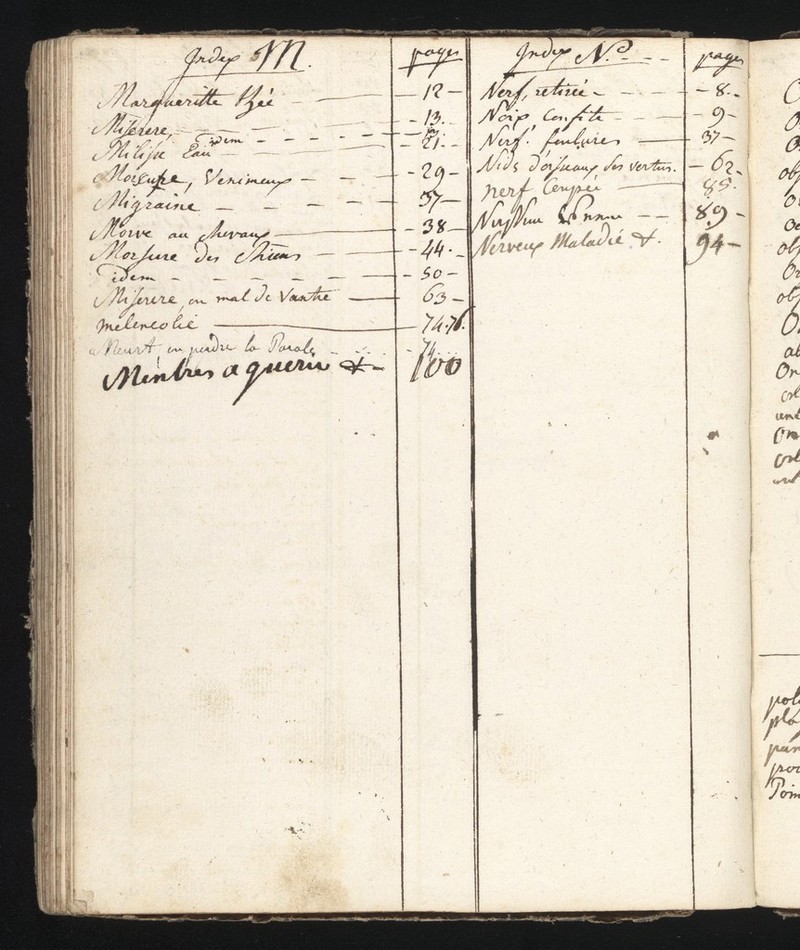 Index M. pages
Margueritte 12
Miserere, 13.
idem
Milisse Eau 21.
Morsure, Venimeux 29
Migraine 37
Morve au chevaux 38
Morsure des Chiens 44.
idem 50
Miserere, ou mal de Vantre 63
melencolie 74.76.
Meurt, ou perdre la Parole 74
Menbres a querir & 100
Index N.º pages
Nerf, retirée 8.
Noix Confite 9
Nerf. foulures 37
Nids d'oiseaux ses vertus. 62
nerf Coupée 85.
89
Nerveux Maladie &. 94
pol
pla
par
Poim